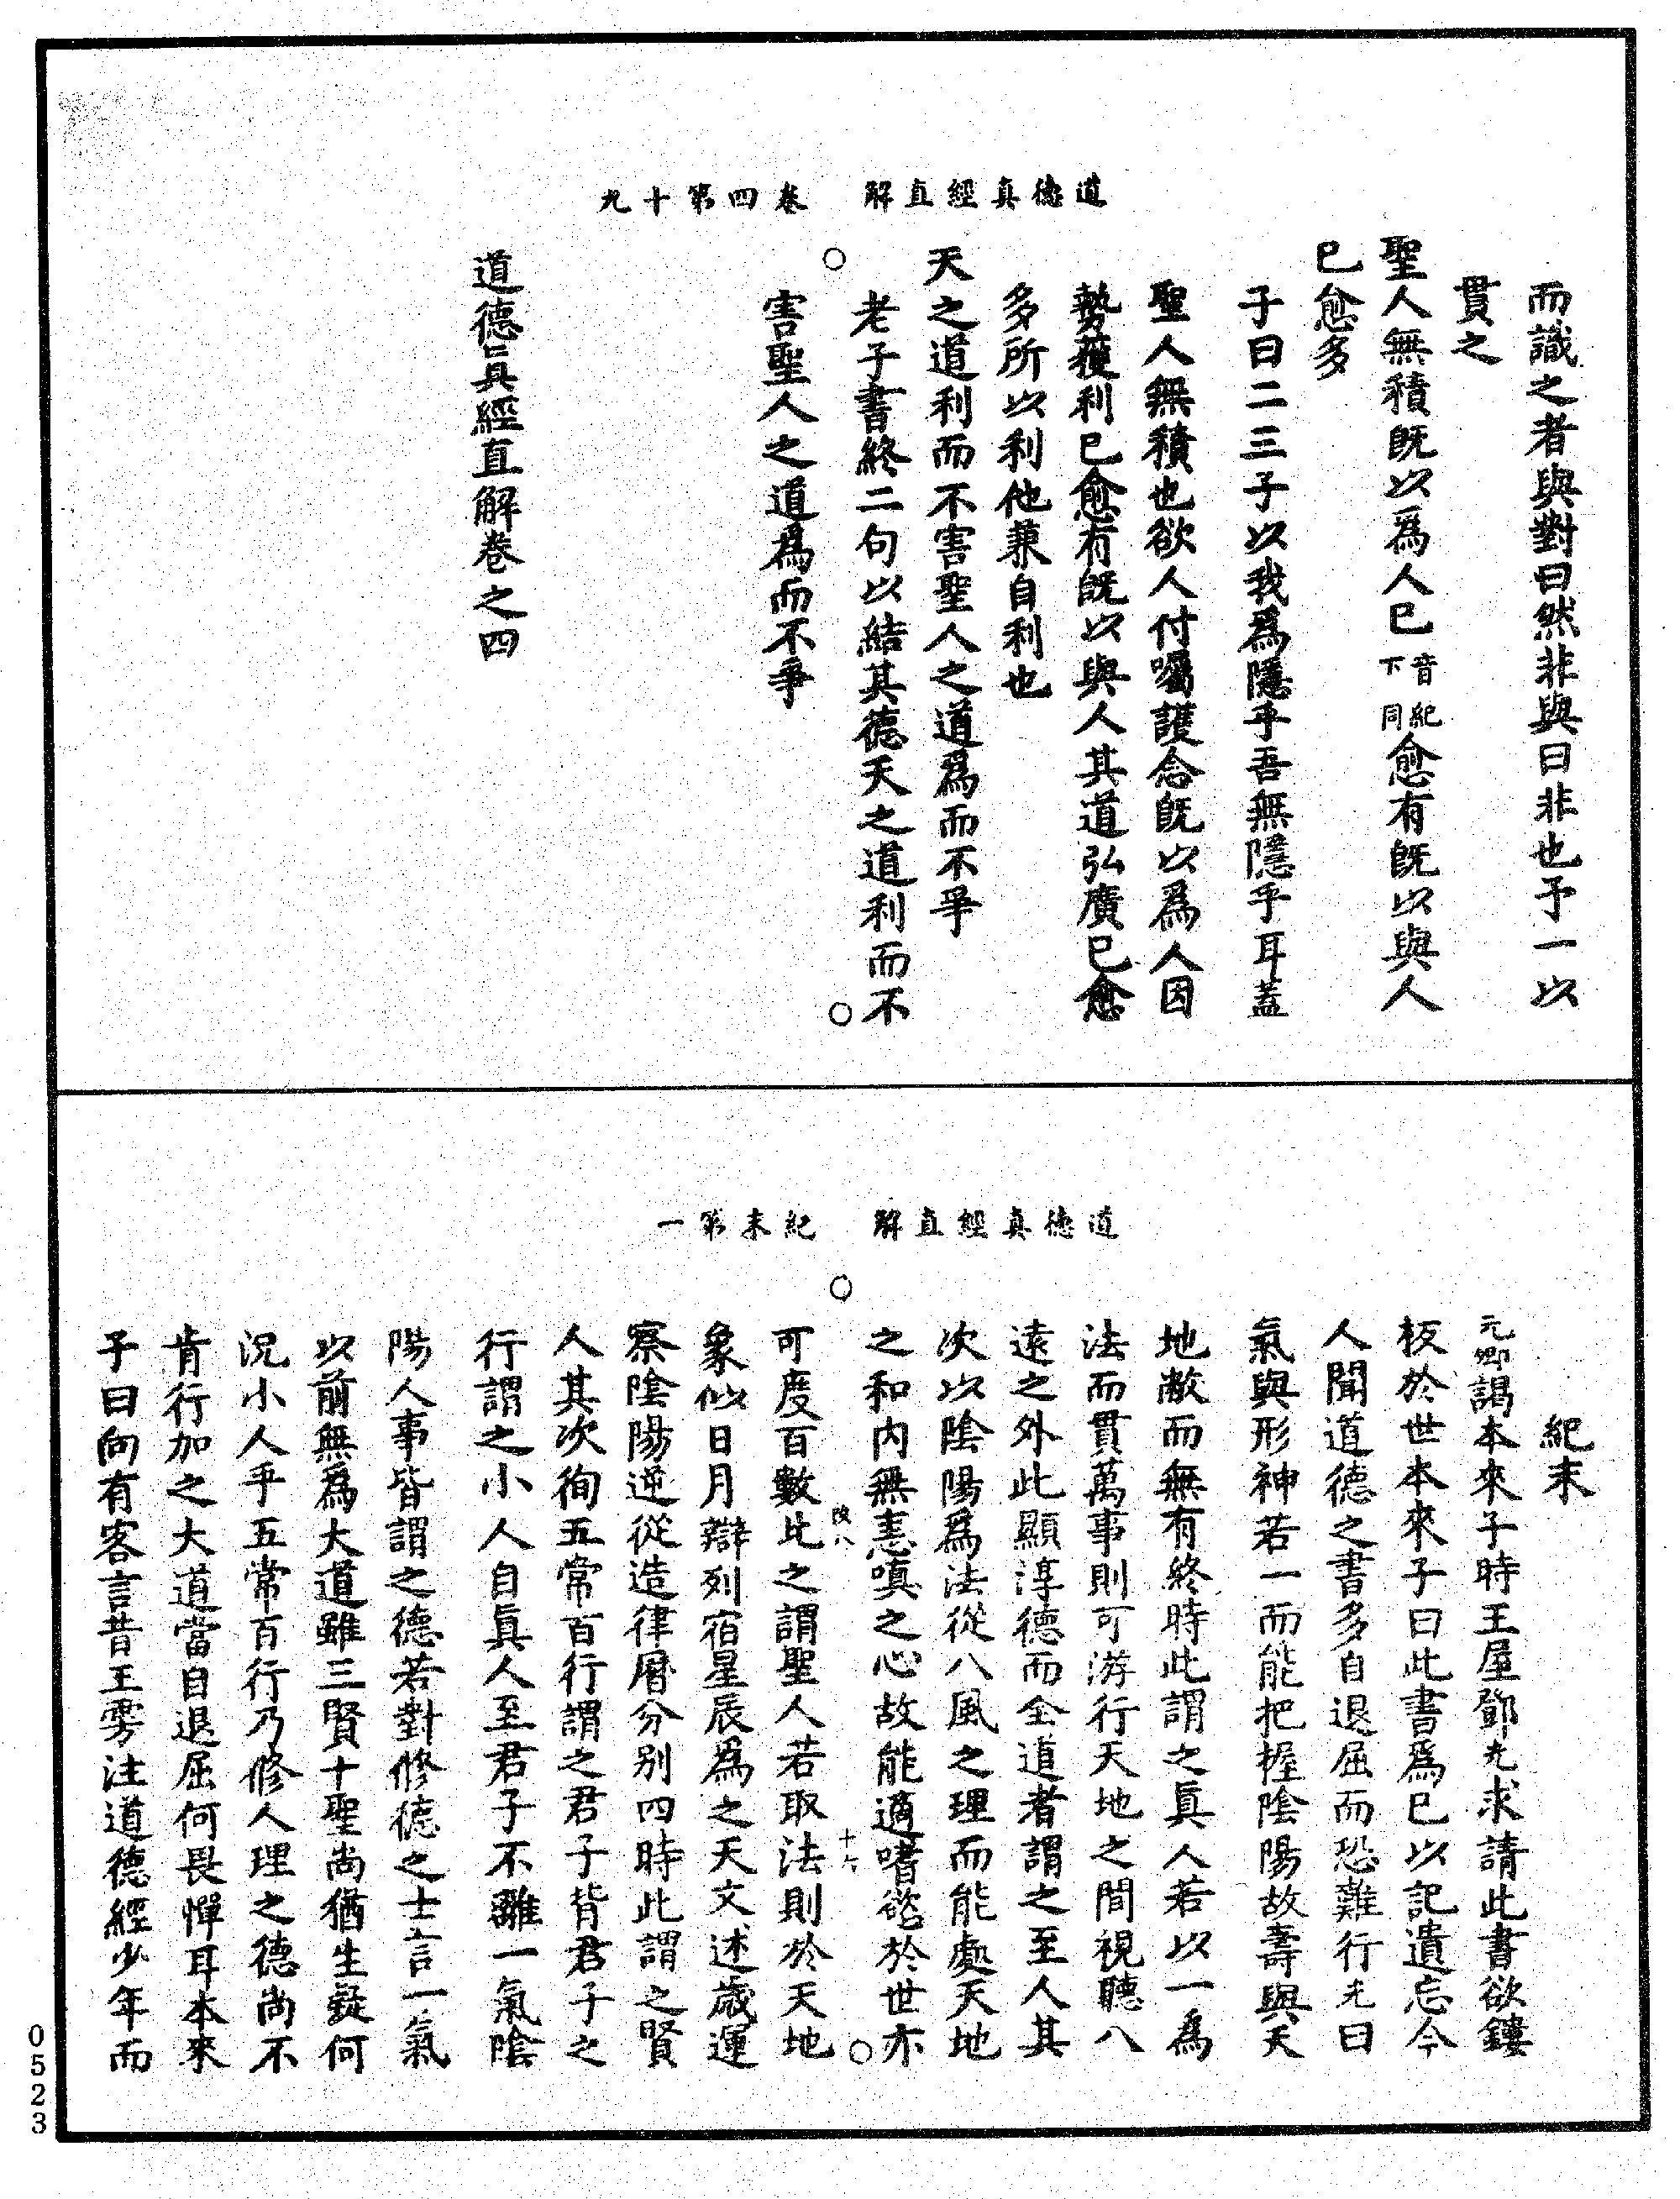 道德真經直解　卷四第十九
而識之者與對曰然非與曰非也予一以
貫之
聖人無積既以爲人已音紀下同愈有既以與人
已愈多
子曰二三子以我爲隱乎吾無隱乎耳蓋
聖人無積也欲人付囑護念既以爲人因
勢獲利已愈有既以與人其道弘廣已愈
多所以利他兼自利也
天之道利而不害聖人之道爲而不爭
老子書終二句以結其德天之道利而不
害聖人之道爲而不爭
道德眞經直解卷之四
道德真經直解　紀末第一
紀末
元卿謁本來子時王屋鄧九求請此書欲鏤
板於世本來子曰此書爲已以記遺忘今
人聞道德之書多自退屈而恐難行九曰
氣與形神若一而能把握陰陽故壽與天
地敝而無有終時此謂之眞人若以一爲
法而貫萬事則可游行天地之間視聽八
遠之外此顯淳德而全道者謂之至人其
次以陰陽爲法從八風之理而能處天地
之和内無恚嗔之心故能適嗜慾於世亦
可度百數此之謂聖人若取法則於天地
象似日月辯列宿星辰爲之天文述歲運
察陰陽逆從造律曆分别四時此謂之賢
人其次徇五常百行謂之君子背君子之
行謂之小人自眞人至君子不離一氣陰
陽人事皆謂之德若對修德之士言一氣
以前無爲大道雖三賢十聖尚猶生疑何
況小人乎五常百行乃修人理之德尚不
肯行加之大道當自退屈何畏憚耳本來
子曰向有客言昔王雱注道德經少年而
0523